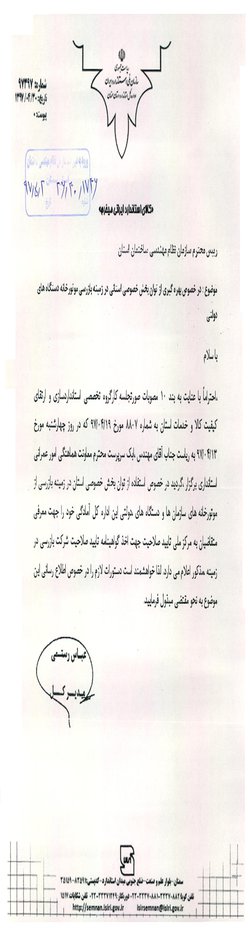 ریاست جمهوری
سازمان ملی استاندارد ایران
شماره: ۹۷۳۹۷
پیوست: ۰
«کالای استاندارد ایرانی میخرم»
رییس محترم سازمان نظام مهندسی ساختمان استان
موضوع: در خصوص بهره گیری از توان بخش خصوصی استانی در زمینه بازرسی موتورخانه دستگاه های
دولتی
با سلام
احتراماً با عنایت به بند ۱۰ مصوبات صورتجلسه کارگروه تخصصی استانداردسازی و ارتقای
کیفیت کالا و خدمات استان به شماره ۸۸۰۷ مورخ ۹۷/۰۴/۱۹ که در روز چهارشنبه مورخ
۹۷/۰۴/۱۳ به ریاست جناب آقای مهندس بابک سرپرست محترم معاونت هماهنگی امور عمرانی
استانداری برگزار گردید در خصوص استفاده از توان بخش خصوصی استان در زمینه بازرسی از
موتورخانه های سازمان ها و دستگاه های دولتی این اداره کل آمادگی خود را جهت معرفی
متقاضیان به مرکز ملی تایید صلاحیت جهت اخذ گواهینامه تایید صلاحیت شرکت بازرسی در
زمینه مذکور اعلام می دارد. لذا خواهشمند است دستورات لازم را در خصوص اطلاع رسانی این
موضوع به نحو مقتضی مبذول فرمایید.
عباس رستمی
مدیر کل
سمنان - بلوار علم و صنعت - ضلع جنوبی میدان استاندارد
http://semnan.isiri.gov.ir isirsemnan@isiri.gov.ir